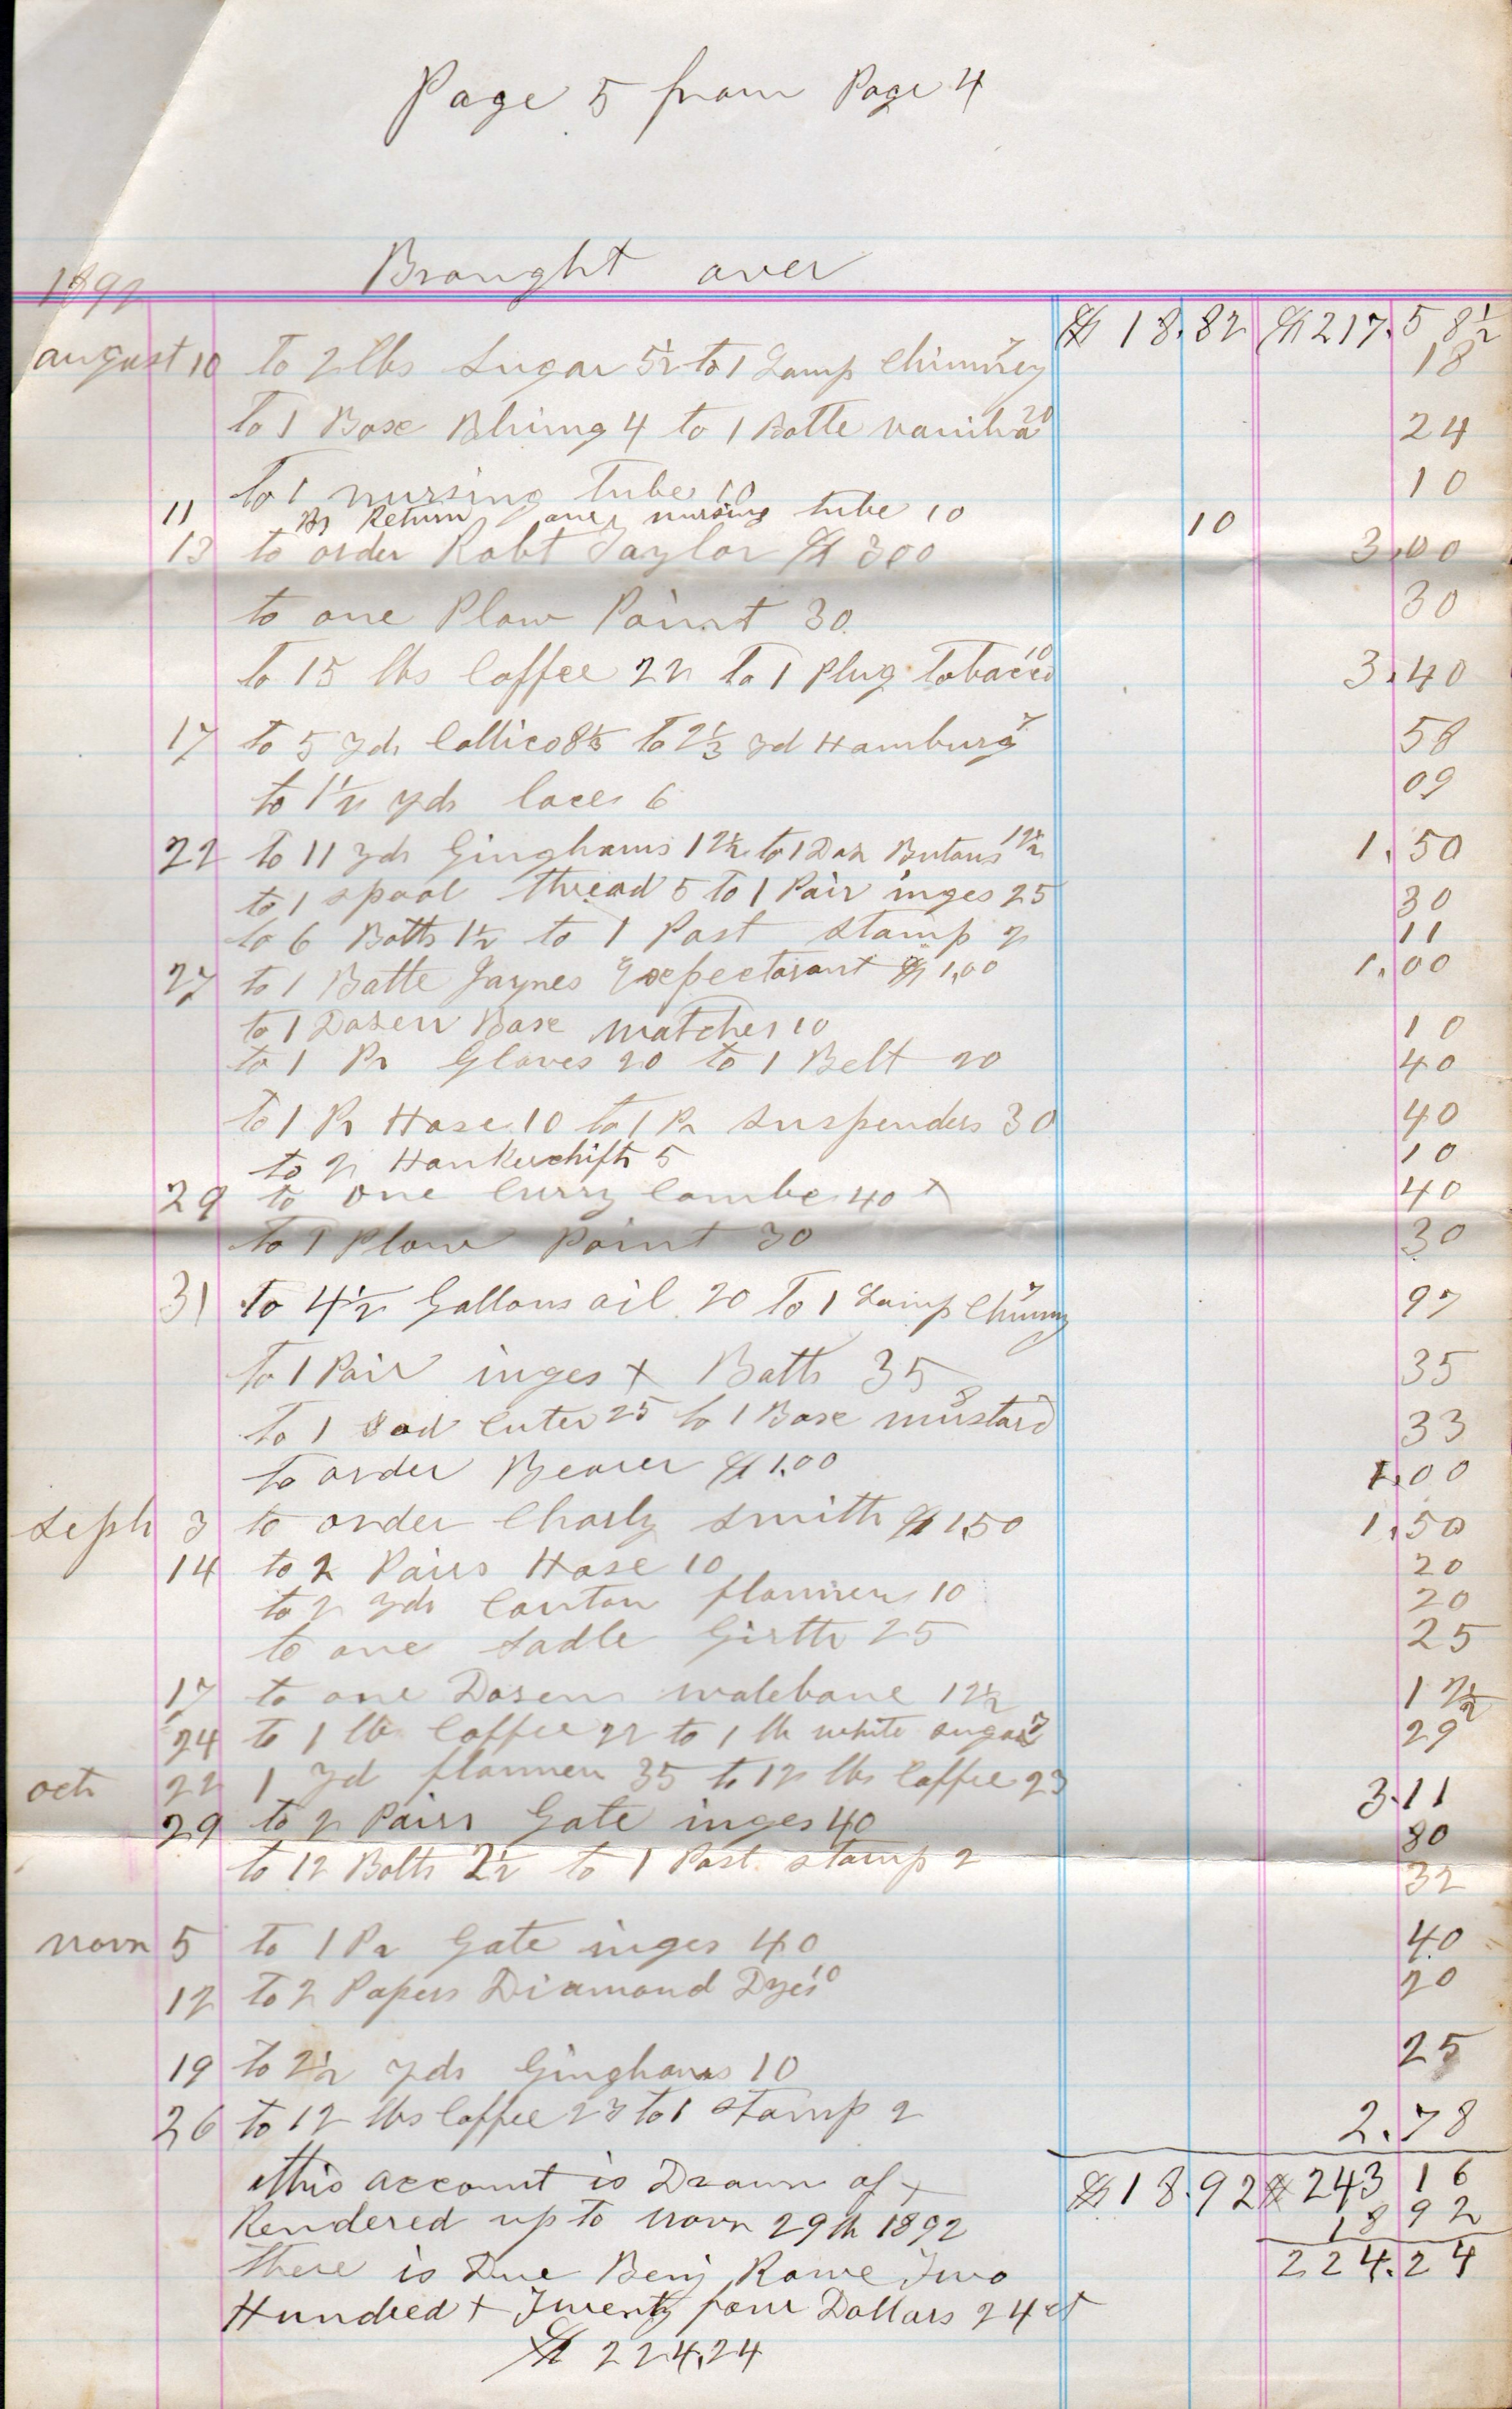 Page 5 from Page 4
Brought over
1892
$ 18.82 $ 217.58½
august 10 to 2 lbs Sugar 5½ to 1 Lamp Chimney 7 18
To 1 Boxe Bluing 4 to 1 Botle vanila 20 24
To 1 nursing tube 10 10
11 By Return one nursing tube 10 10
13 to order Robt Taylor $ 300 3.00
to one Plow Point 30 30
to 15 lbs Coffee 22 to 1 Plug tobacco 10 3.40
17 to 5 yds Callico 8⅓ to 2⅓ yd Hamburg 7 58
to 1½ yds laces 6 09
22 to 11 yds Ginghams 12½ to 1 Doz Butons 12½ 1.50
to 1 spool thread 5 to 1 Pair inges 25 30
to 6 Botts 1½ to 1 Post stamp 2 11
27 to 1 Botle Jaynes Expectorant $ 1.00 1.00
to 1 Dozen Boxe matches 10 10
to 1 Pr Gloves 20 to 1 Belt 20 40
To 1 Pr Hose 10 to 1 Pr suspenders 30 40
to 2 Hankerchifts 5 10
29 to one Curry Combe 40 40
to 1 Plow Point 30 30
31 to 4½ Gallons oil 20 To 1 Lamp Chimny 7 97
To 1 Pair inges + Botts 35 35
To 1 Sod Cuter 25 to 1 Boxe mustard 8 33
to order Bearer $ 1.00 1.00
Seph 3 to order Charly Smith $ 1.50 1.50
14 to 2 Pairs Hose 10 20
to 2 yds Canton flannen 10 20
to one sadle Girth 25 25
17 to one Dozen walebone 12½ 12½
24 to 1 lb Coffee 22 to 1 lb white sugar 7 29
octr 22 1 yd flannen 35 to 12 lbs Coffee 23 3.11
29 to 2 Pairs Gate inges 40 80
to 12 Bolts 2½ to 1 Post stamp 2 32
Novr 5 to 1 Pr Gate inges 40 40
12 To 2 Papers Diamond Dyes 10 20
19 to 2½ yds Ginghams 10 25
26 to 12 lbs Coffee 23 to 1 Stamp 2 2.78
this account is Drawn of + $ 18.92 $ 243 16
Rendered up to Novr 29th 1892 18 92
there is Due Benj Rowe Two 224.24
Hundred + Twenty four Dollars 24 ct
$ 224.24